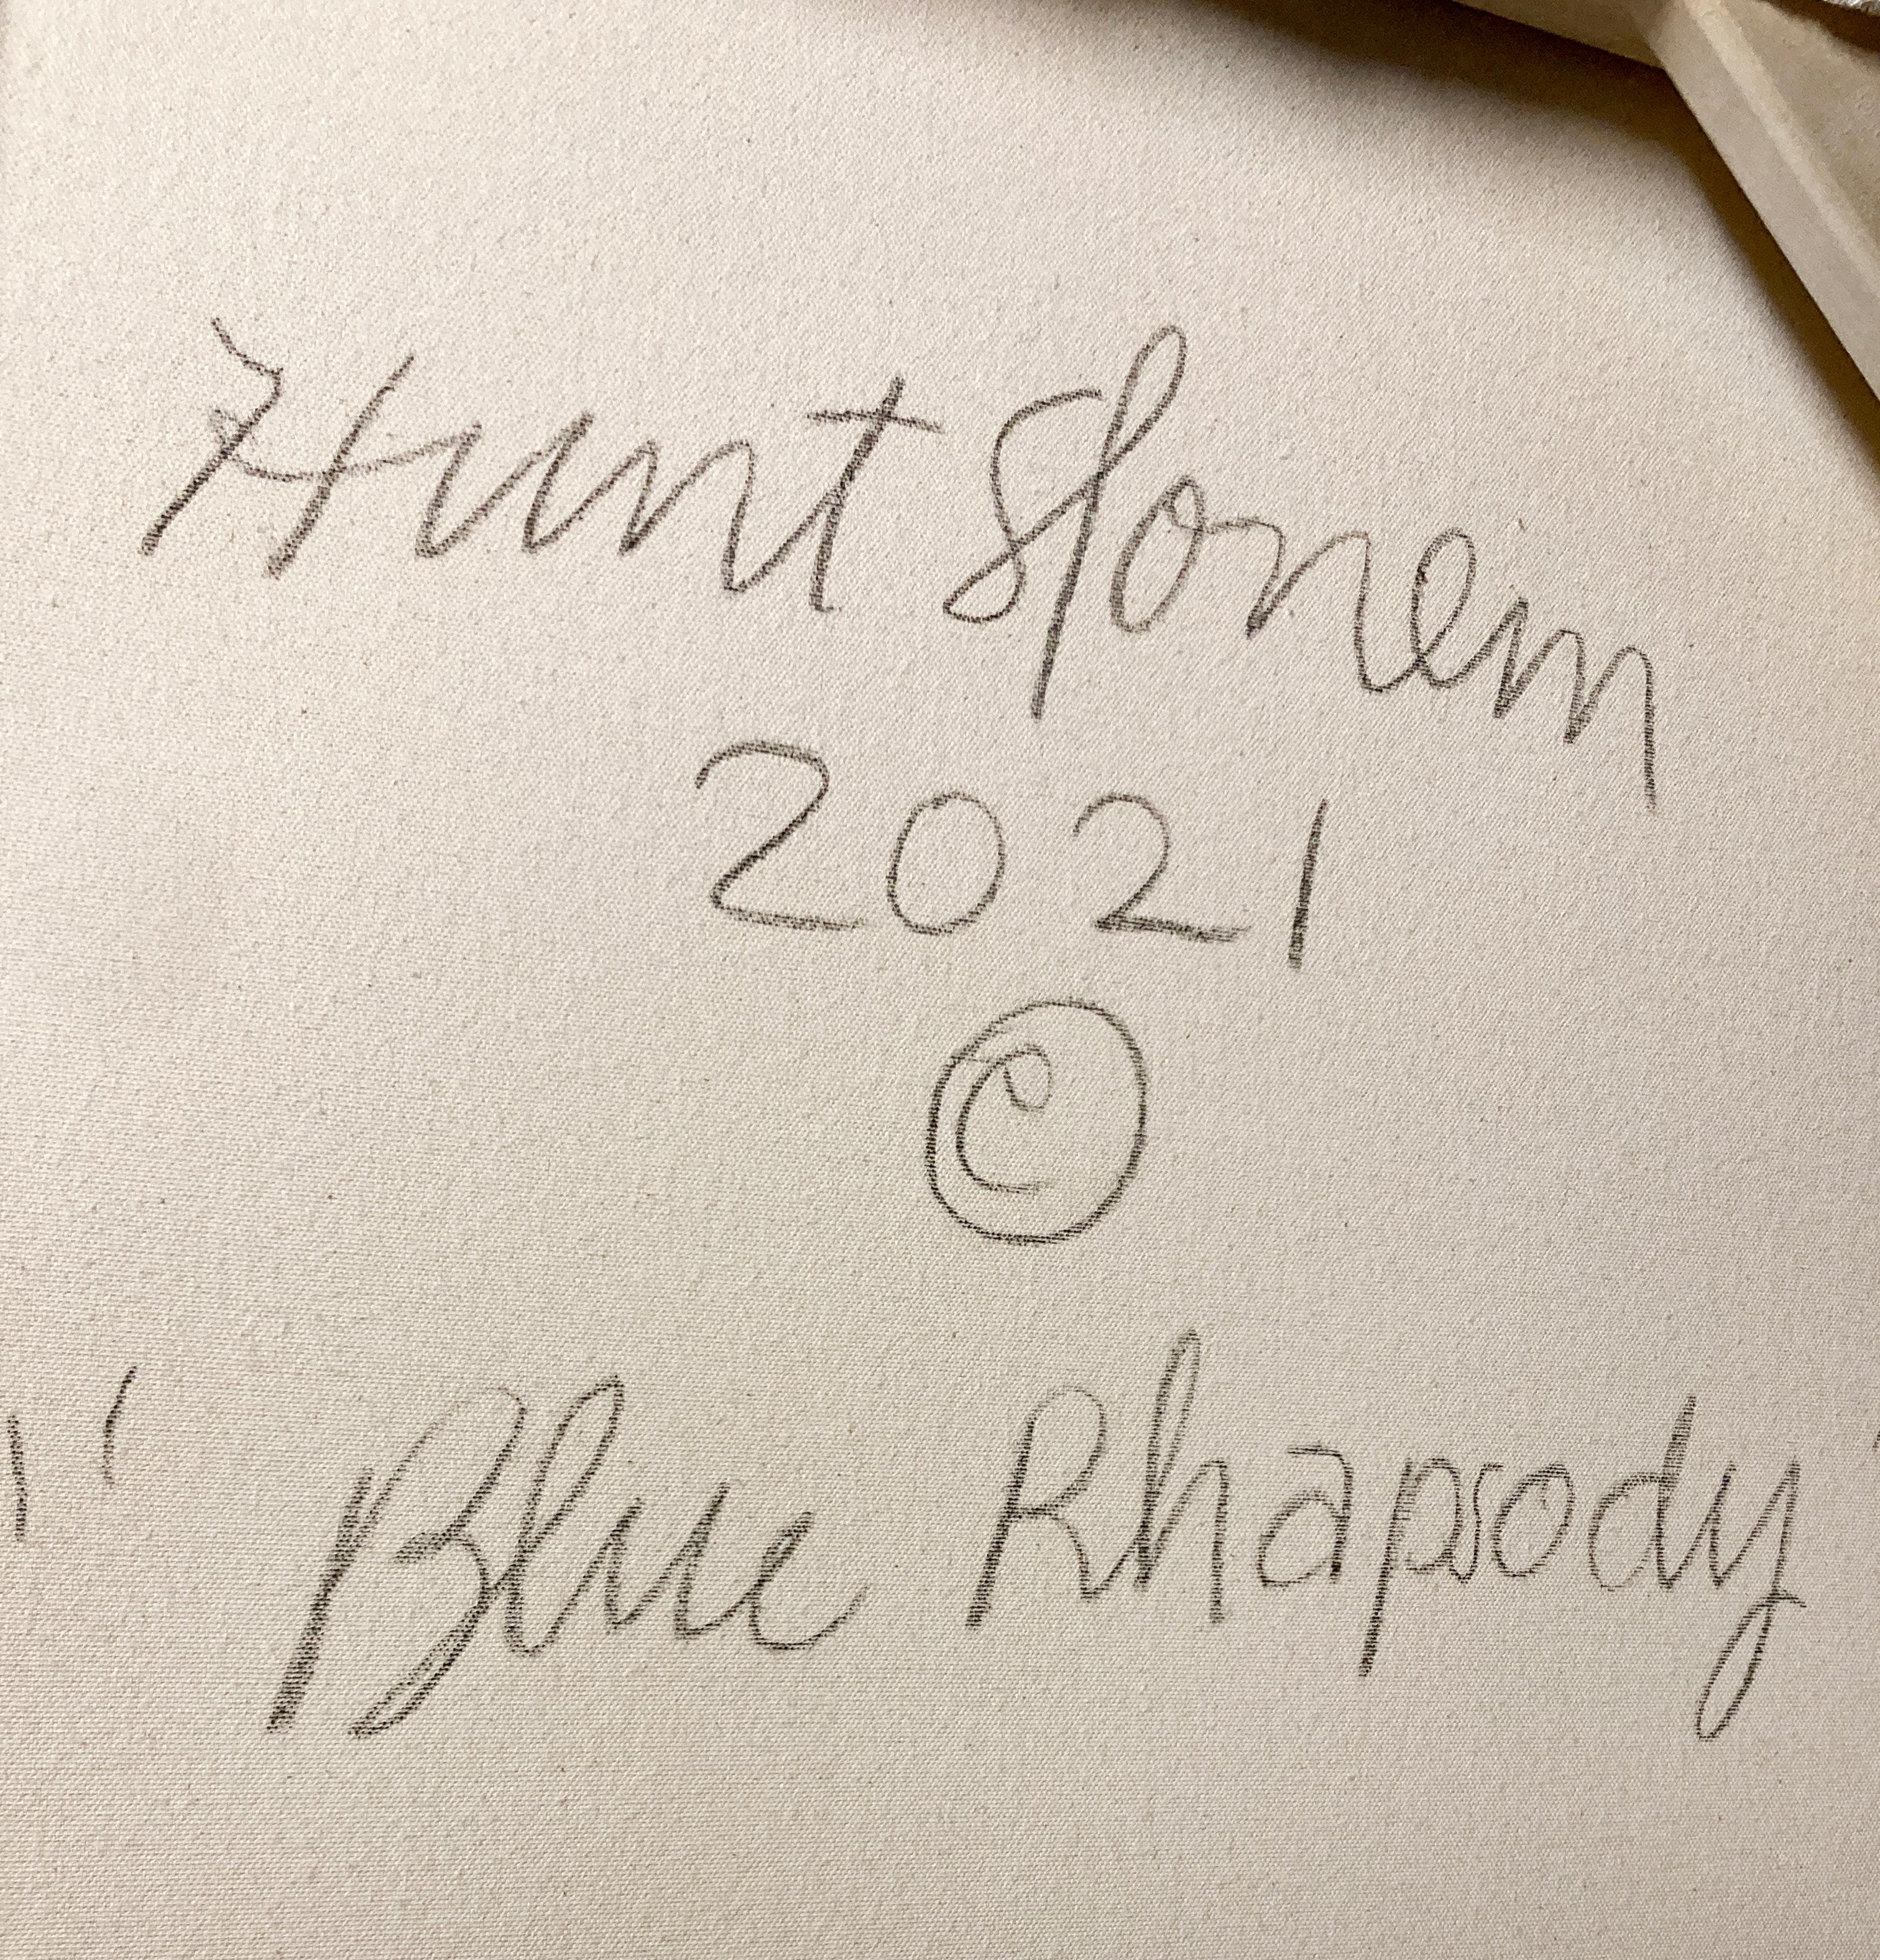 Hunt Slonem
2021
©
"Blue Rhapsody"